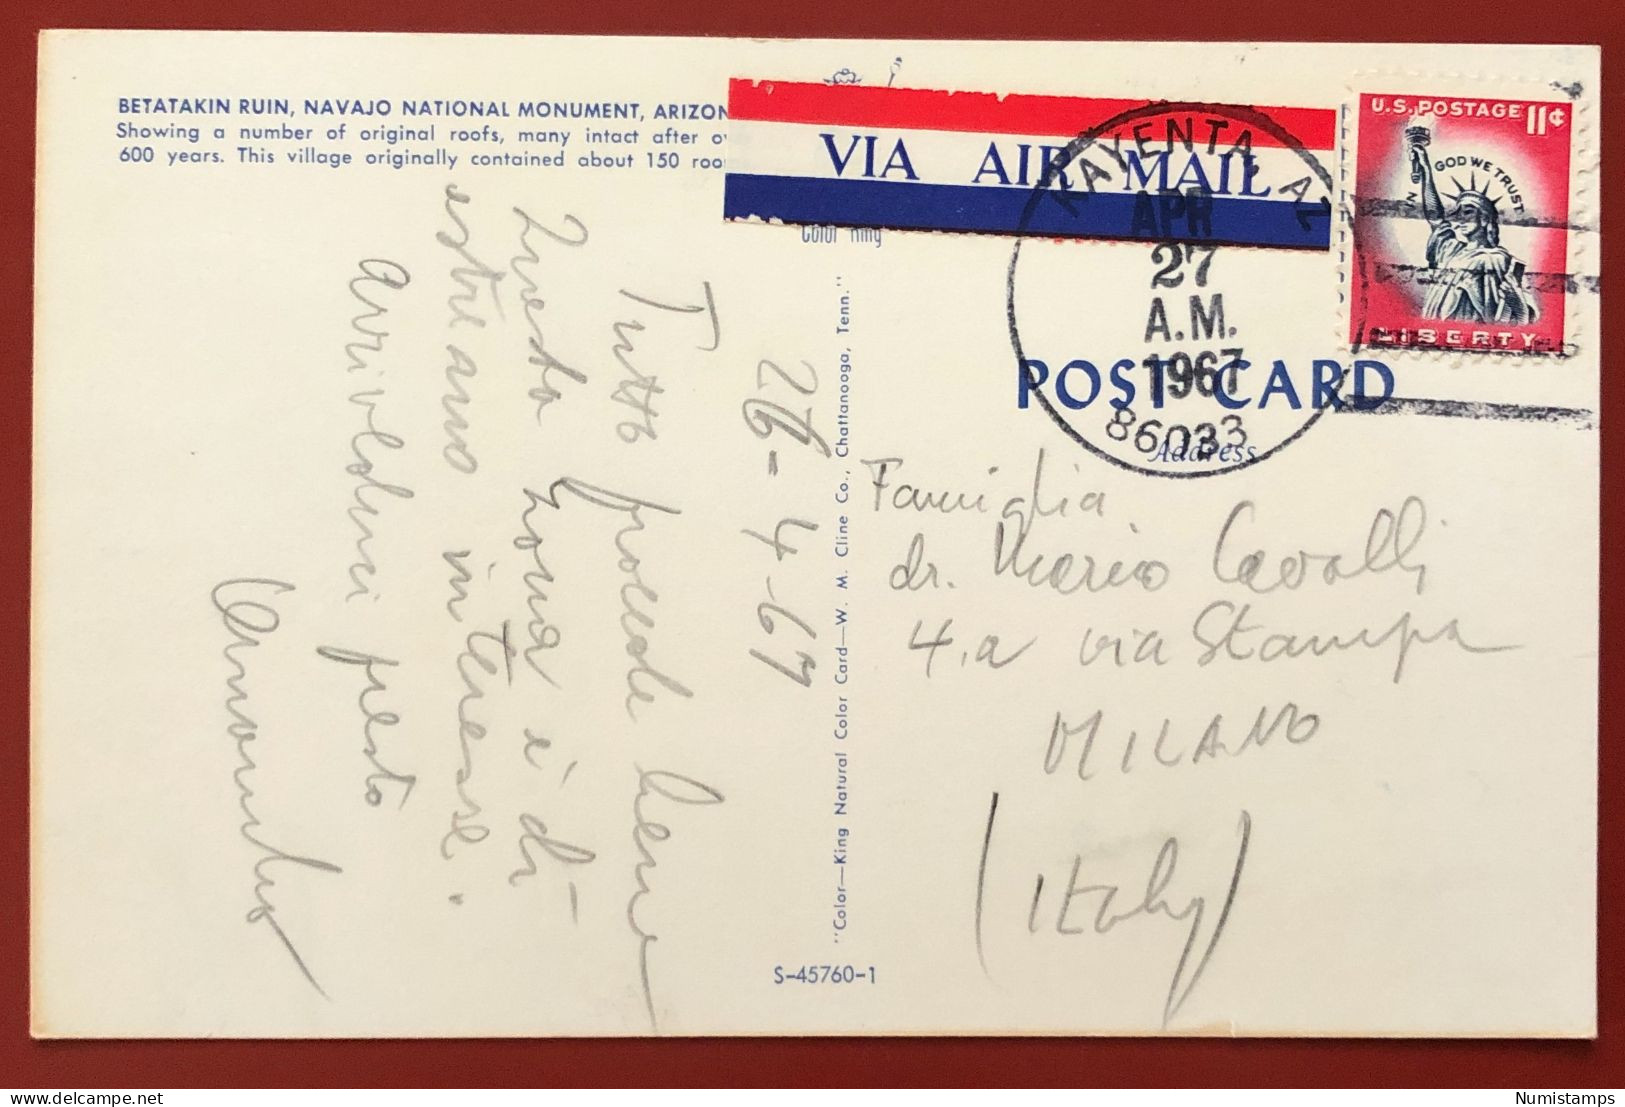 BETATAKIN RUIN, NAVAJO NATIONAL MONUMENT, ARIZON
Showing a number of original roofs, many intact after o
600 years. This village originally contained about 150 roo
VIA AIR MAIL
Color King
KAYENTA, AZ
APR
27
A.M.
1967
86033
U.S. POSTAGE 11¢
IN GOD WE TRUST
LIBERTY
POST CARD
Address
26-4-67
Tutto procede bene
Questa zona è di
estremo interesse.
Arrivederci presto
"Color—King Natural Color Card—W. M. Cline Co., Chattanooga, Tenn."
S-45760-1
Famiglia
dr. Mario Cavalli
4.a via Stampa
MILANO
(Italy)
Numistamps
delcampe.net